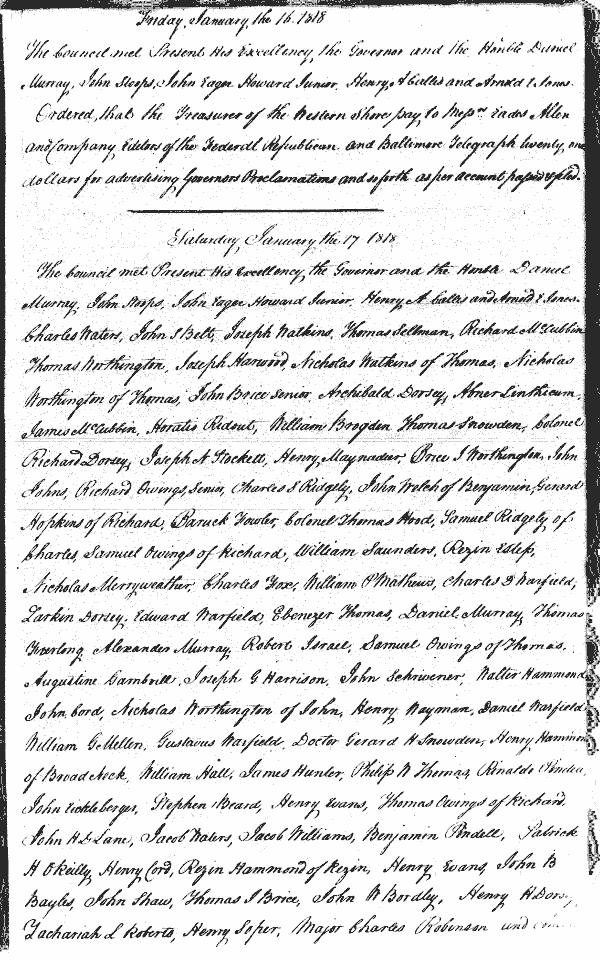 Friday, January, the 16. 1818
The Council met Present His Excellency, the Governor and the Honble Daniel
Murray, John Stoops, John Eager Howard Junior, Henry A Calles and Arnold E Jones.
Ordered, that the Treasurer of the Western Shore pay, to Messrs Eades Allen
and Company, Editors of the Federal Republican and Baltimore Telegraph twenty, one
dollars for advertising Governors Proclamations and so forth as per account passed &filed.
Saturday, January the 17 1818
The Council met Present His Excellency, the Governor and the Honble Daniel
Murray, John Stoops, John Eager Howard Junior, Henry A Calles and Arnold E Jones.
Charles Waters, John S Belt, Joseph Watkins, Thomas Sellman, Richard McCubbin
Thomas Worthington, Joseph Harwood, Nicholas Watkins of Thomas, Nicholas
Worthington of Thomas, John Brice Senior, Archibald Dorsey, Abner Linthicum,
James McCubbin, Horatio Ridout, William Brogden Thomas Snowden, Colonel
Richard Dorsey, Joseph N Stockett, Henry, Maynadier, Brice J Worthington, John
Johns, Richard Owings, Senior, Charles S Ridgely, John Welch of Benjamin, Gerard
Hopkins of Richard, Baruck Fowler, Colonel Thomas Hood, Samuel Ridgely of
Charles, Samuel Owings of Richard, William Saunders, Rezin Estep,
Nicholas Merryweather, Charles Fox, William P Mathews, Charles D Warfield,
Larkin Dorsey, Edward Warfield, Ebenezer Thomas, Daniel Murray, Thomas
Furlong Alexander Murray, Robert Israel, Samuel Owings of Thomas,
Augustine Gambrill, Joseph G Harrison, John Scrivener, Walter Hammond
John Cord, Nicholas Worthington of John, Henry Wayman, Daniel Warfield
William G Mellen, Gustavus Warfield, Doctor Gerard H Snowden, Henry Hammond
of Broad Neck, William Hall, James Hunter, Philip W Thomas, Rinaldo Pindell,
John Eickleberger, Stephen Beard, Henry Evans, Thomas Owings of Richard,
John H D Lane, Jacob Waters, Jacob Williams, Benjamin Pindell, Patrick
H OReilly, Henry Cord, Rezin Hammond of Rezin, Henry Evans, John B
Bayles, John Shaw, Thomas J Brice, John W Bordley, Henry H Dorsey,
Zachariah L Roberts, Henry Soper, Major Charles Robinson and